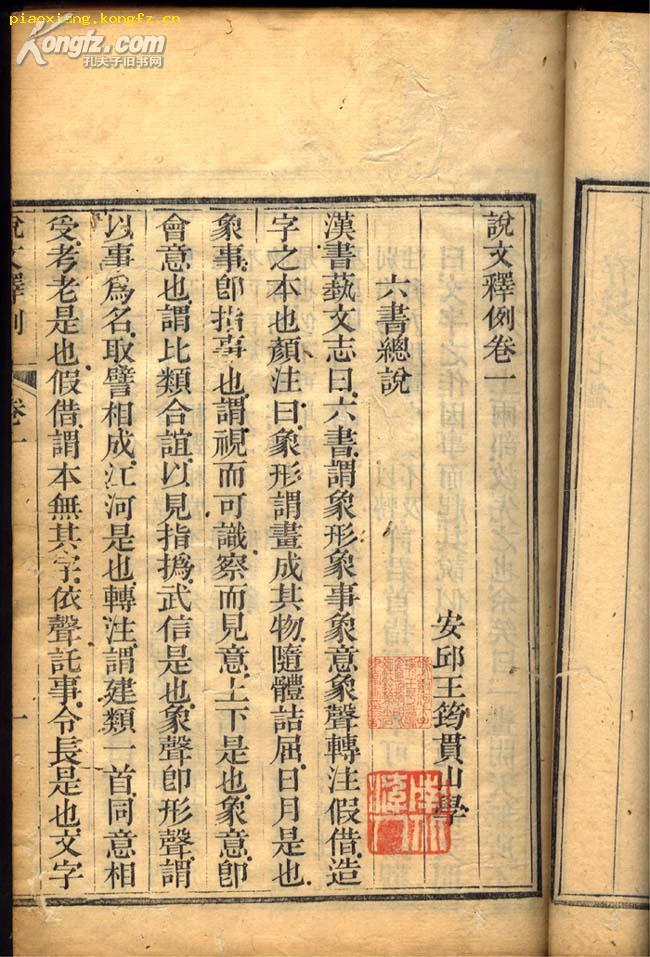 piaoxiang.kongfz.cn
Kongfz.com
孔夫子旧书网
說文釋例卷一
安邱王筠貫山學
六書總說
漢書藝文志曰六書謂象形象事象意象聲轉注假借造
字之本也顏注曰象形謂畫成其物隨體詰屈日月是也
象事卽指事也謂視而可識察而見意上下是也象意卽
會意也謂比類合誼以見指撝武信是也象聲卽形聲謂
以事爲名取譬相成江河是也轉注謂建類一首同意相
受考老是也假借謂本無其字依聲託事令長是也文字
說文釋例 卷一 一